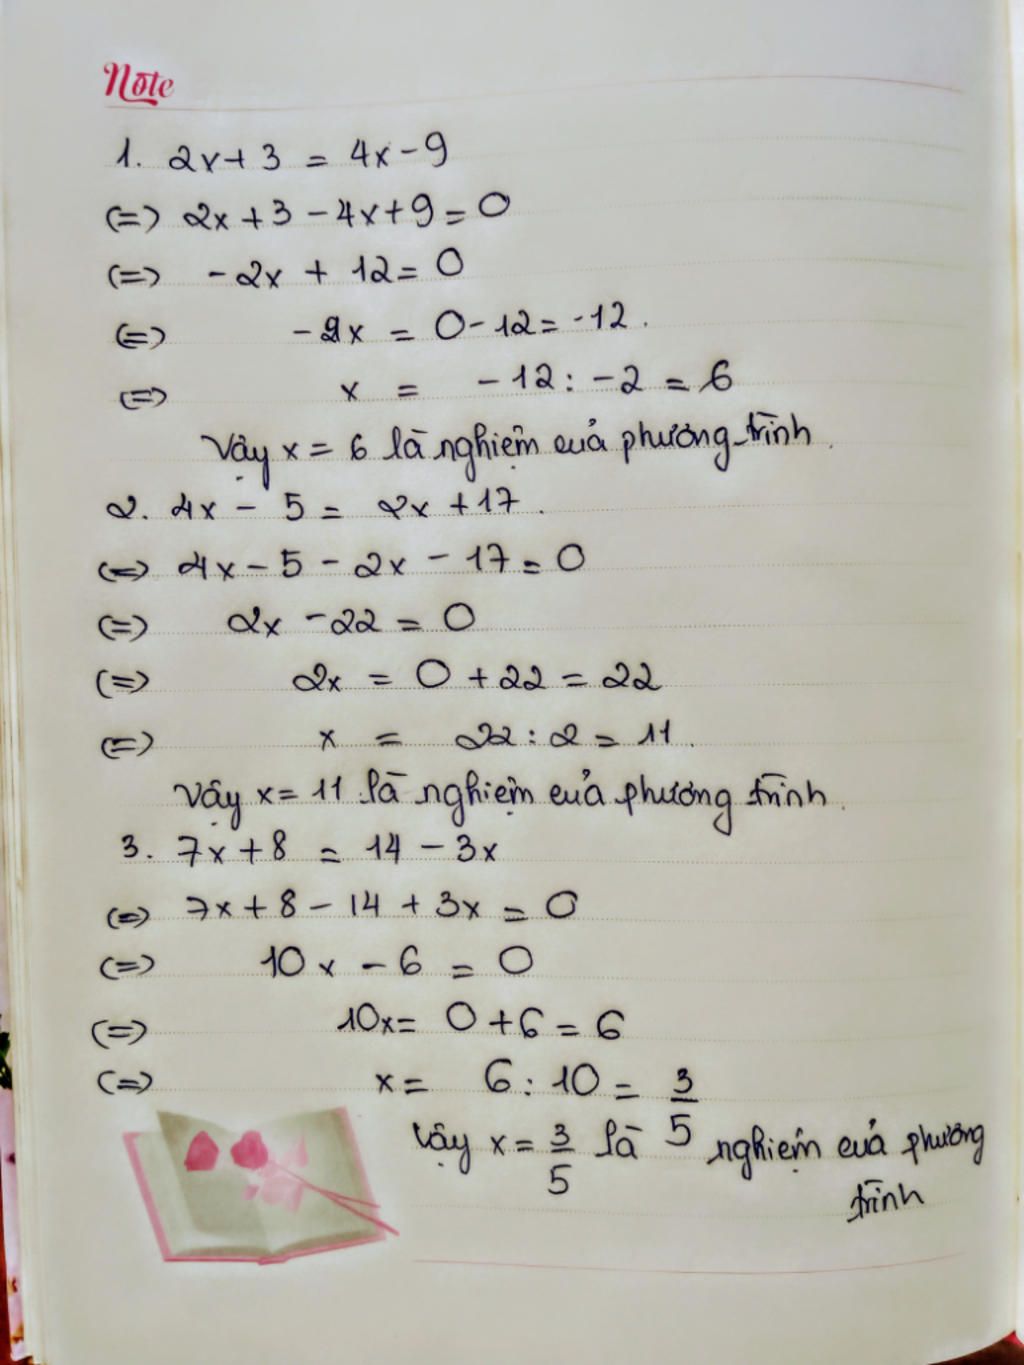 Note
1. 2x + 3 = 4x - 9
(=) 2x + 3 - 4x + 9 = 0
(=) - 2x + 12 = 0
(=) - 2x = 0 - 12 = -12.
(=) x = - 12 : - 2 = 6
Vậy x = 6 là nghiệm của phương trình.
2. 4x - 5 = 2x + 17.
(=) 4x - 5 - 2x - 17 = 0
(=) 2x - 22 = 0
(=) 2x = 0 + 22 = 22
(=) x = 22 : 2 = 11.
Vậy x = 11 là nghiệm của phương trình.
3. 7x + 8 = 14 - 3x
(=) 7x + 8 - 14 + 3x = 0
(=) 10x - 6 = 0
(=) 10x = 0 + 6 = 6
(=) x = 6 : 10 = 3/5
Vậy x = 3/5 là nghiệm của phương
trình